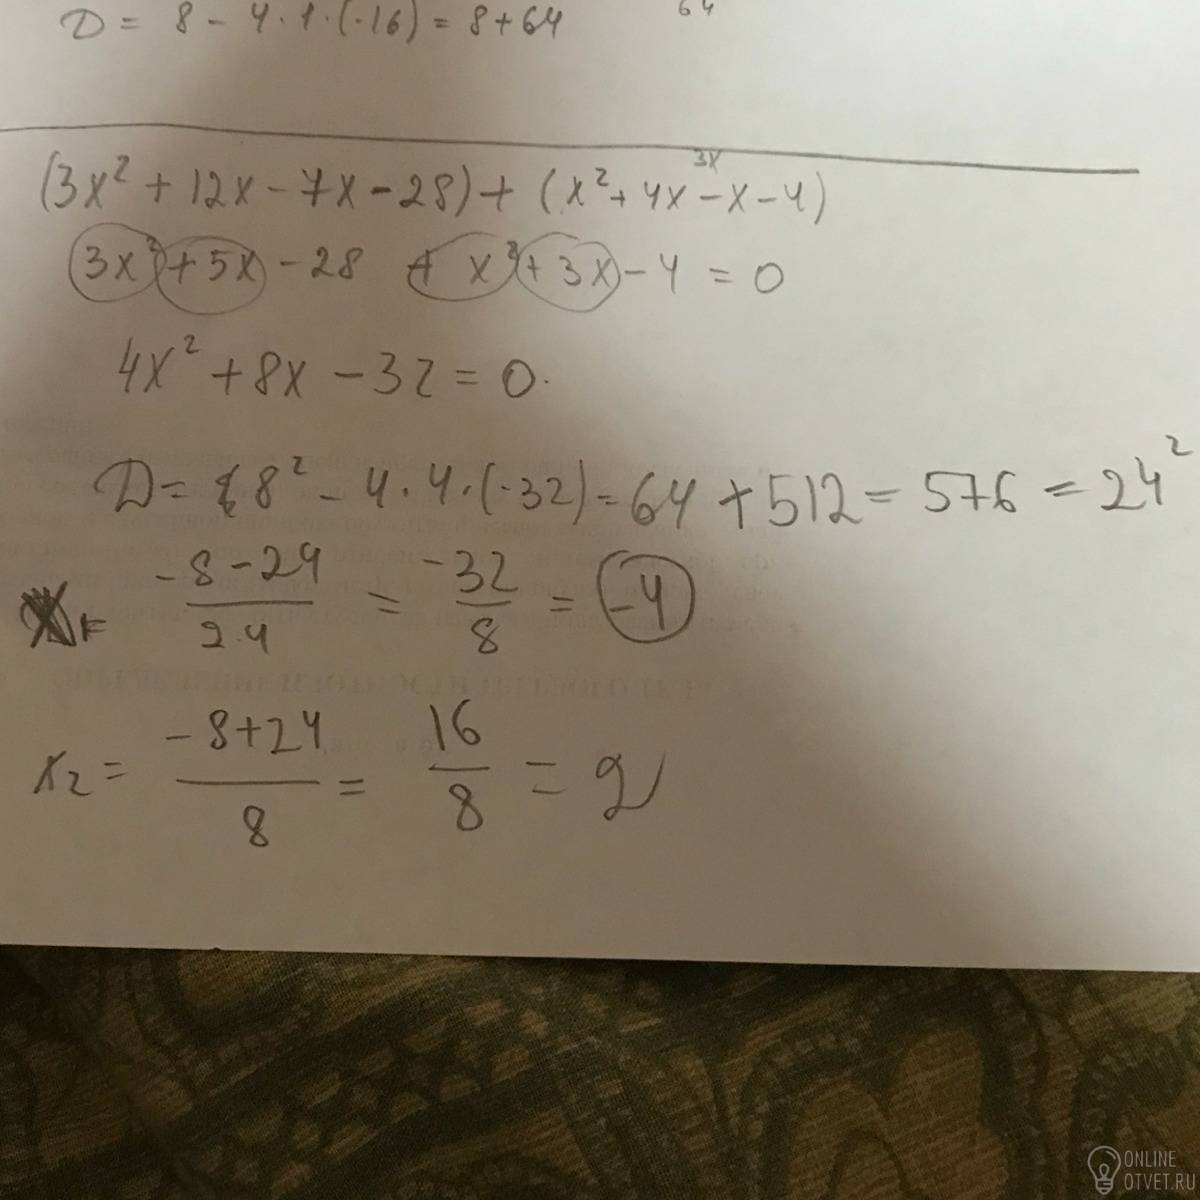 64
D = 8 - 4 · 1 · (-16) = 8 + 64
3x
(3x² + 12x - 7x - 28) + (x² + 4x - x - 4)
3x² + 5x - 28 + x² + 3x - 4 = 0
4x² + 8x - 32 = 0.
D = 8² - 4 · 4 · (-32) = 64 + 512 = 576 = 24²
x₁ = -8 - 24 / 2·4 = -32 / 8 = -4
x₂ = -8 + 24 / 8 = 16 / 8 = 2
ONLINE
OTVET.RU